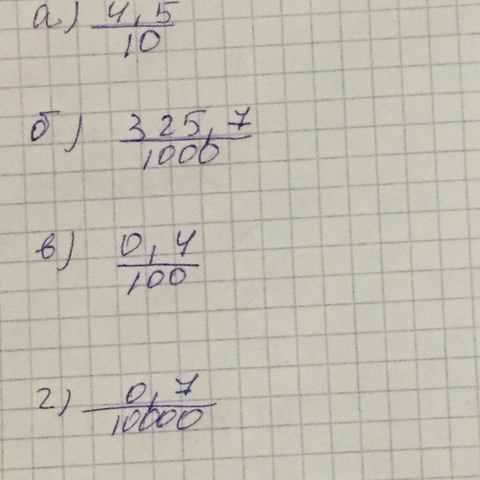 а) 4,5/10
б) 325,7/1000
в) 0,4/100
г) 0,7/10000